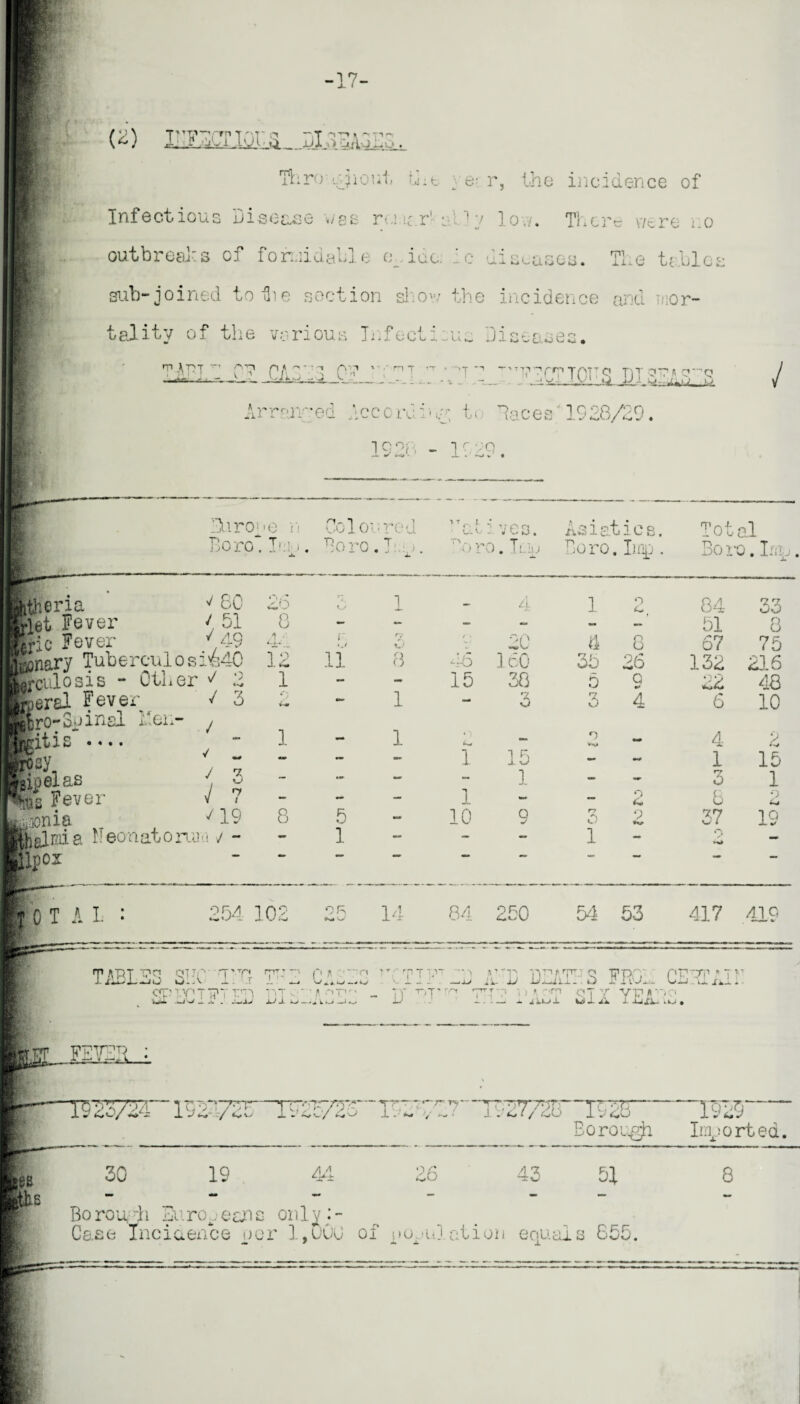 -17-
(2) INFECTIOUS DISEASES.
Throughout the year, the incidence of
Infectious Disease was remarkably low. There were no
outbreaks of formidable epidemic diseases. The tables
sub-joined to the section show the incidence and mor-
tality of the various Infectious Diseases.
TABLE OF CASES OF INFECTIOUS DISEASES /
Arranged According to Races 1928/29.
1928 - 1929.
Europe n Coloured Natives. Asiatics. Total
Boro. Imp. Boro. Imp. Boro. Imp Boro. Imp. Boro. Imp.
htheria √ 80 26 3 1 - 4 1 2 84 33
rlet Fever √ 51 8 - - - - - - 51 8
eric Fever √ 49 4 5 3 20 4 8 67 75
monary Tuberculosis √ 40 12 11 8 46 160 35 26 132 216
erculosis - Other √ 2 1 - - 15 38 5 9 22 48
rperal Fever √ 3 2 - 1 - 3 3 4 6 10
ebro-Spinal Men- /
ingitis .... - 1 - 1 2 - 2 - 4 2
rosy √ - - - - 1 15 - - 1 15
sipelas √ 3 - - - - 1 - - 3 1
hus Fever √ 7 - - - 1 - - 2 8 2
monia √ 19 8 5 - 10 9 3 2 37 19
thalmia Neonatorum √ - - 1 - - - 1 - 2 -
llpox - - - - - - - - - -
TOTAL : 254 102 25 14 84 250 54 53 417 419
TABLES SHOWING THE CASES NOTIFIED AND DEATHS FROM CERTAIN
SPECIFIED DISEASES - DURING THE PAST SIX YEARS.
LET FEVER :
1923/24 1924/25 1925/26 1926/27 1927/28 1928 1929
Borough Imported.
ses 30 19 44 26 43 51 8
ths - - - - - - -
Borough Europeans only:-
Case Incidence per 1,000 of population equals 855.